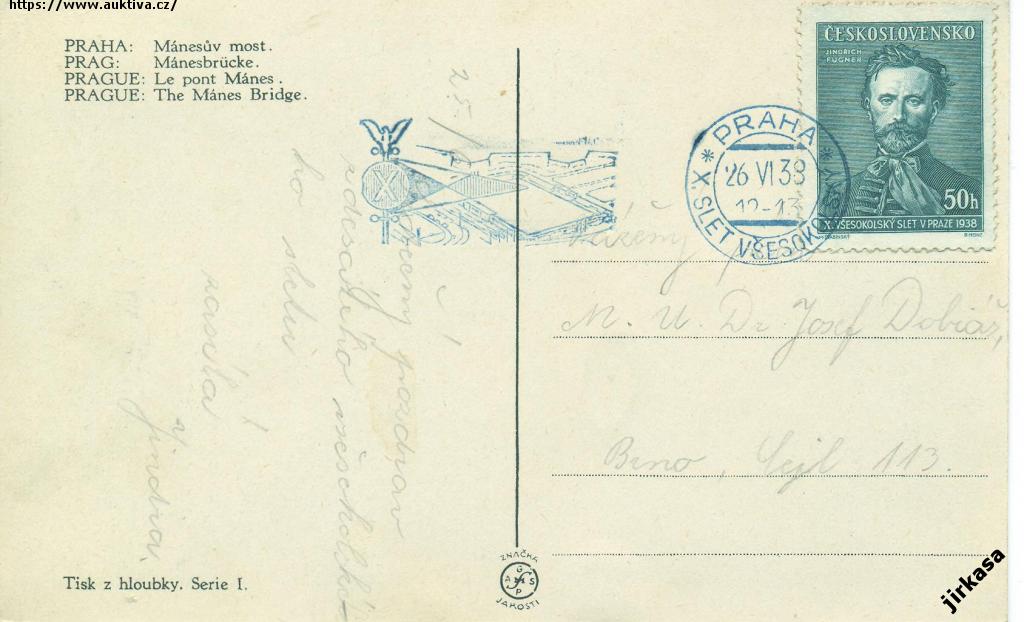 https://www.auktiva.cz/
PRAHA: Mánesův most.
PRAG: Mánesbrücke.
PRAGUE: Le pont Mánes.
PRAGUE: The Mánes Bridge.
25/
Srdečný pozdrav
z desátého všesokolské-
ho sletu
zasílá
Jindra.
X
PRAHA
26 VI 38
12-13
X. SLET VŠESOKO
ČESKOSLOVENSKO
JINDŘICH
FÜGNER
50h
X. VŠESOKOLSKÝ SLET V PRAZE 1938
Vážený
M. U. Dr. Josef Dobiáš,
Brno, Cejl 113.
ZNAČKA
G
A S
P
JAKOSTI
Tisk z hloubky. Serie I.
jirkasa